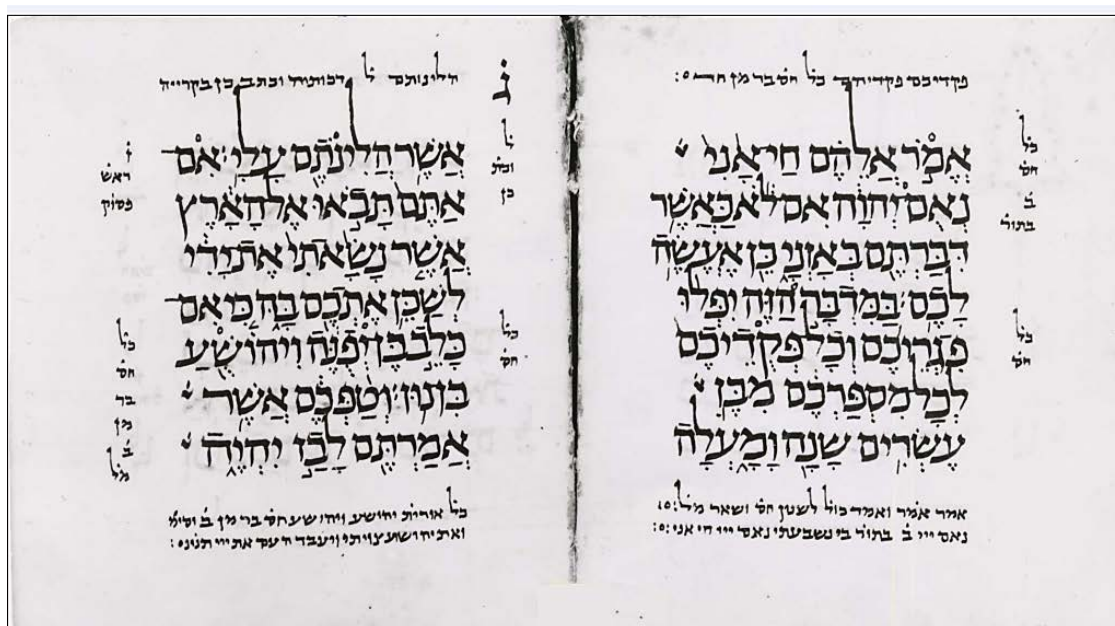 פקדיכם פקדיהם כל חס בר מן חד :
כל
חס
ב
בתור
אֱמֹר אֲלֵהֶם חַי אָנִי
נְאֻם יְהוָה אִם לֹא כַּאֲשֶׁר
דִּבַּרְתֶּם בְּאָזְנָי כֵּן אֶעֱשֶׂה
לָכֶם׃ בַּמִּדְבָּר הַזֶּה יִפְּלוּ
פִגְרֵיכֶם וְכָל פְּקֻדֵיכֶם
לְכָל מִסְפַּרְכֶם מִבֶּן
עֶשְׂרִים שָׁנָה וָמָעְלָה
כל
חס
אמר אמר ואמר כול לשטן חס ושאר מל :
נאם ייי ב בתור בי נשבעתי נאם ייי חי אני :
הלינותם ל דכותיה וכתב כן בקרייה
ל
וכת
כן
אֲשֶׁר הֲלִינֹתֶם עָלָי׃ אִם
אַתֶּם תָּבֹאוּ אֶל הָאָרֶץ
אֲשֶׁר נָשָׂאתִי אֶת יָדִי
לְשַׁכֵּן אֶתְכֶם בָּהּ כִּי אִם
כָּלֵב בֶּן יְפֻנֶּה וִיהוֹשֻׁעַ
בִּן נוּן׃ וְטַפְּכֶם אֲשֶׁר
אֲמַרְתֶּם לָבַז יִהְיֶה
כל
חס
ז
ראש
פסוק
כל
חס
בר
מן
ב
מל
כל אורית יהושע ויהושע חס בר מן ב וסימ
ואת יהושוע צויתי ויעבד העם את ייי תנינ :